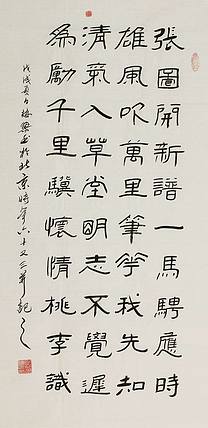 張圖開新譜一馬騁應時
雄風吹萬里筆華我先知
清氣入草堂明志不覺遲
為勵千里驥懷情桃李識
戊戌夏月於北京時年六十又三并記之